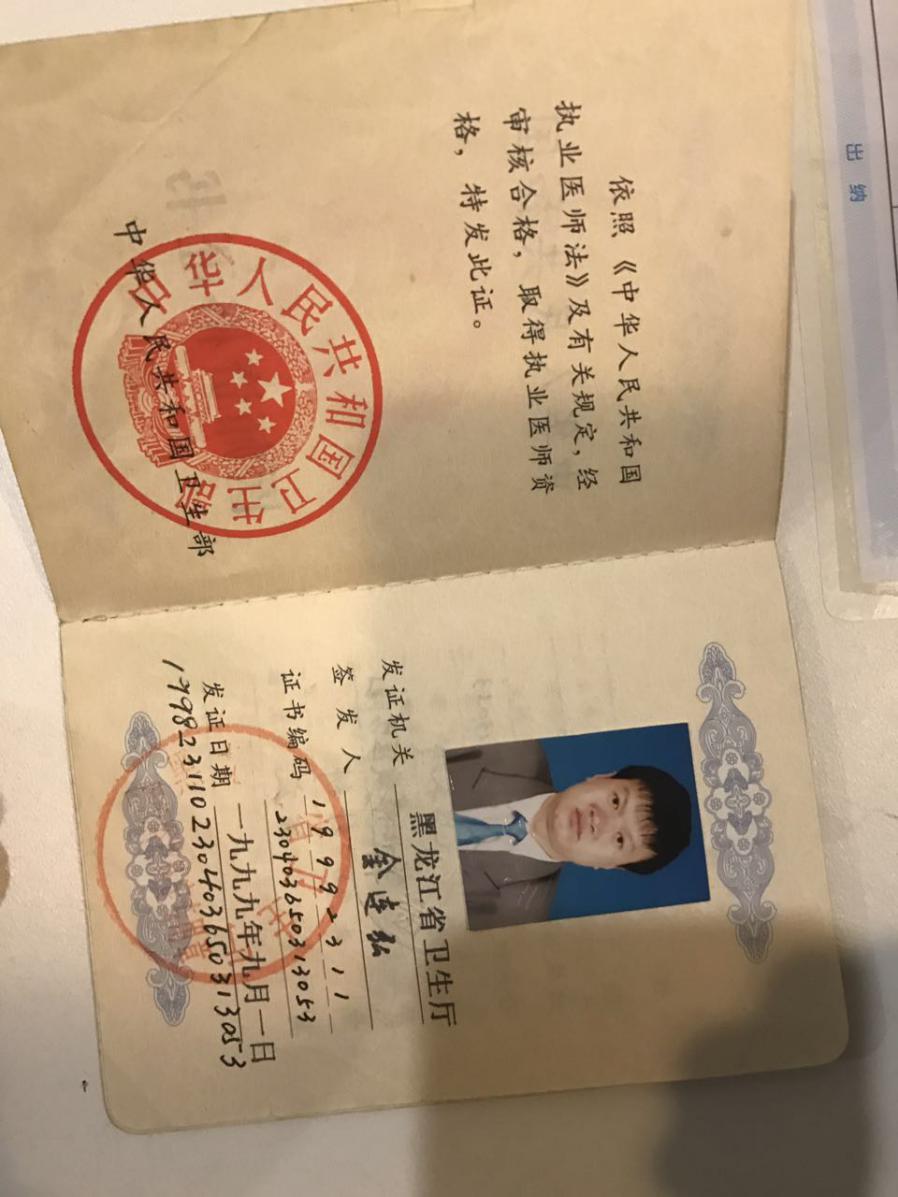 依照《中华人民共和国
执业医师法》及有关规定，经
审核合格，取得执业医师资
格，特发此证。
中华人民共和国卫生部
中华人民共和国卫生部
发证机关 黑龙江省卫生厅
签发人 金连弘
证书编码 19992311
230403650313053
发证日期 一九九九年九月一日
199823110230403650313053
出纳